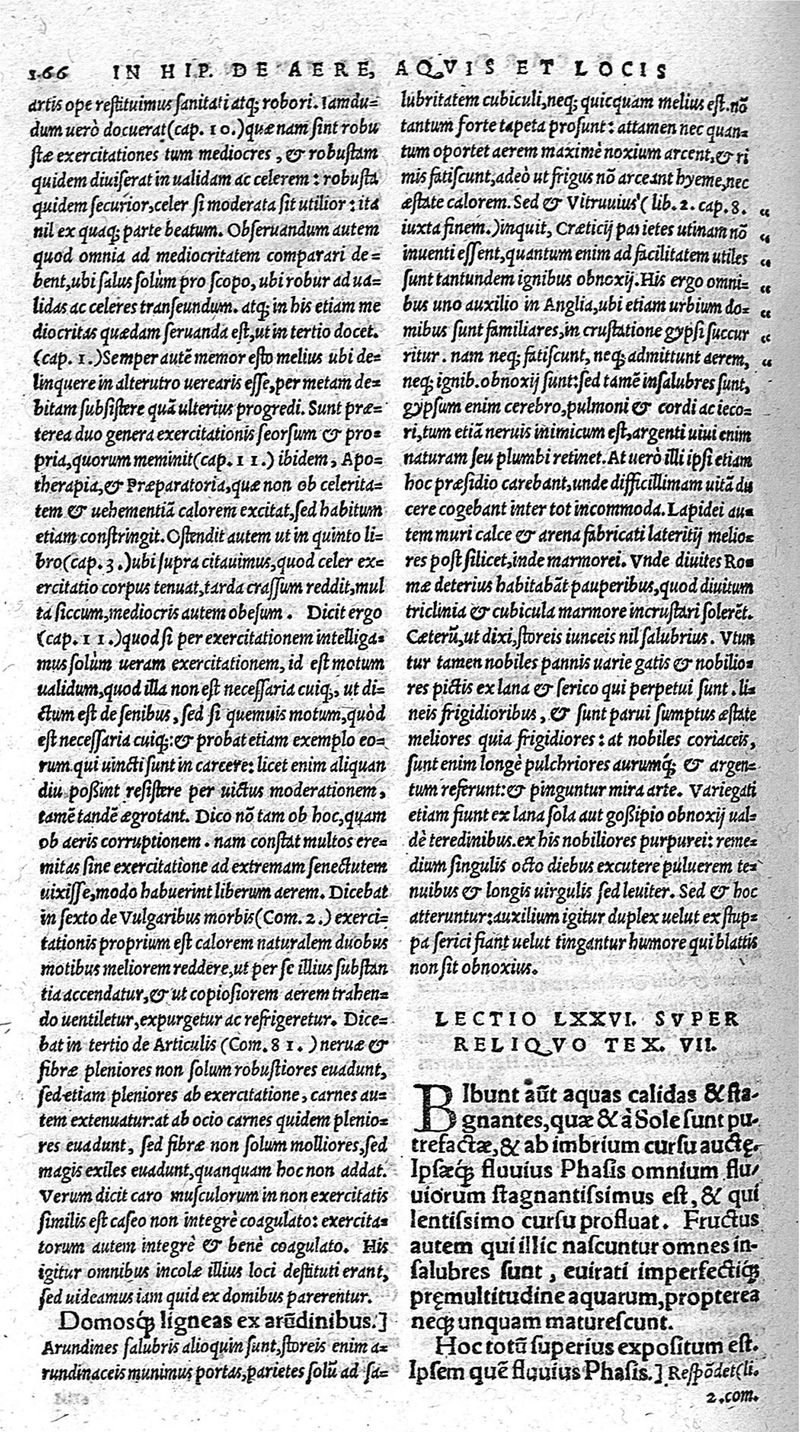 166 IN HIP. DE AERE, AQVIS ET LOCIS
artis ope restituimus sanitati atq; robori. Iamdu=
dum uerò docuerat (cap. 10.) quæ nam sint robu
stæ exercitationes tum mediocres, & robustam
quidem diuiserat in ualidam ac celerem: robusta
quidem securior, celer si moderata sit utilior: ita
nil ex quaq; parte beatum. Obseruandum autem
quod omnia ad mediocritatem comparari de=
bent, ubi salus solùm pro scopo, ubi robur ad ua=
lidas ac celeres transeundum. atq; in his etiam me
diocritas quædam seruanda est, ut in tertio docet.
(cap. 1.) Semper autē memor esto melius ubi de=
linquere in alterutro uerearis esse, per metam de=
bitam subsistere quā ulterius progredi. Sunt præ=
terea duo genera exercitationis seorsum & pro=
pria, quorum meminit (cap. 11.) ibidem, Apo=
therapia, & Præparatoria, quæ non ob celerita=
tem & uehementiā calorem excitat, sed habitum
etiam constringit. Ostendit autem ut in quinto li=
bro (cap. 3.) ubi supra citauimus, quod celer ex=
ercitatio corpus tenuat, tarda crassum reddit, mul
ta siccum, mediocris autem obesum. Dicit ergo
(cap. 11.) quod si per exercitationem intelliga=
mus solùm ueram exercitationem, id est motum
ualidum, quod illa non est necessaria cuiq;, ut di=
ctum est de senibus, sed si quemuis motum, quòd
est necessaria cuiq;: & probat etiam exemplo eo=
rum qui uincti sunt in carcere: licet enim aliquan
diu poßint resistere per uictus moderationem,
tamē tandē ægrotant. Dico nō tam ob hoc, quam
ob aeris corruptionem. nam constat multos ere=
mitas sine exercitatione ad extremam senectutem
uixisse, modo habuerint liberum aerem. Dicebat
in sexto de Vulgaribus morbis (Com. 2.) exerci=
tationis proprium est calorem naturalem duobus
motibus meliorem reddere, ut per se illius substan
tia accendatur, & ut copiosiorem aerem trahen=
do uentiletur, expurgetur ac refrigeretur. Dice=
bat in tertio de Articulis (Com. 81.) neruæ &
fibræ pleniores non solum robustiores euadunt,
sed etiam pleniores ab exercitatione, carnes au=
tem extenuatur: at ab ocio carnes quidem plenio=
res euadunt, sed fibræ non solum molliores, sed
magis exiles euadunt, quanquam hoc non addat.
Verum dicit caro musculorum in non exercitatis
similis est caseo non integrè coagulato: exercita=
torum autem integrè & benè coagulato. His
igitur omnibus incolæ illius loci destituti erant,
sed uideamus iam quid ex domibus parerentur.
Domosq; ligneas ex arūdinibus.]
Arundines salubris alioquin sunt, storeis enim a=
rundinaceis minimus portas, parietes solū ad sa=
lubritatem cubiculi, neq; quicquam melius est. nō
tantum forte tapeta prosunt: attamen nec quan=
tum oportet aerem maximè noxium arcent, & ri
mis fatiscunt, adeò ut frigus nō arceant hyeme, nec
æstate calorem. Sed & Vitruuius (lib. 2. cap. 8. “
iuxta finem.) inquit, Cræticij parietes utinam nō “
inuenti essent, quantum enim ad facilitatem utiles “
sunt tantundem ignibus obnoxij. His ergo omni= “
bus uno auxilio in Anglia, ubi etiam urbium do= “
mibus sunt familiares, in crustatione gypsi succur “
ritur. nam neq; fatiscunt, neq; admittunt aerem, “
neq; ignib. obnoxij sunt: sed tamē insalubres sunt,
gypsum enim cerebro, pulmoni & cordi ac ieco=
ri, tum etiā neruis inimicum est, argenti uiui enim
naturam seu plumbi retinet. At uerò illi ipsi etiam
hoc præsidio carebant, unde difficillimam uitā du
cere cogebant inter tot incommoda. Lapidei au=
tem muri calce & arena fabricati lateritij melio=
res post silicet, inde marmorei. Vnde diuites Ro=
mæ deterius habitabāt pauperibus, quod diuitum
triclinia & cubicula marmore incrustari solerēt.
Cæterū, ut dixi, storeis iunceis nil salubrius. Vtun
tur tamen nobiles pannis uarie gatis & nobilio=
res pictis ex lana & serico qui perpetui sunt. li=
neis frigidioribus, & sunt parui sumptus æstate
meliores quia frigidiores: at nobiles coriaceis,
sunt enim longè pulchriores aurumq; & argen=
tum referunt: & pinguntur mira arte. Variegati
etiam fiunt ex lana sola aut goßipio obnoxij ual=
dè teredinibus. ex his nobiliores purpurei: reme=
dium singulis octo diebus excutere puluerem te=
nuibus & longis uirgulis sed leuiter. Sed & hoc
atteruntur: auxilium igitur duplex uelut ex stup=
pa serici fiant uelut tingantur humore qui blattis
non sit obnoxius.
LECTIO LXXVI. SVPER
RELIQVO TEX. VII.
BIbunt aūt aquas calidas & sta-
gnantes, quæ & à Sole sunt pu-
trefactæ, & ab imbrium cursu auctę.
Ipsæq; fluuius Phasis omnium flu-
uiorum stagnantissimus est, & qui
lentissimo cursu profluat. Fructus
autem qui illic nascuntur omnes in-
salubres sunt, euirati imperfectiq;
pręmultitudine aquarum, propterea
neq; unquam maturescunt.
Hoc totū superius expositum est.
Ipsem quē fluuius Phasis.] Respōdet (li.
2. com.